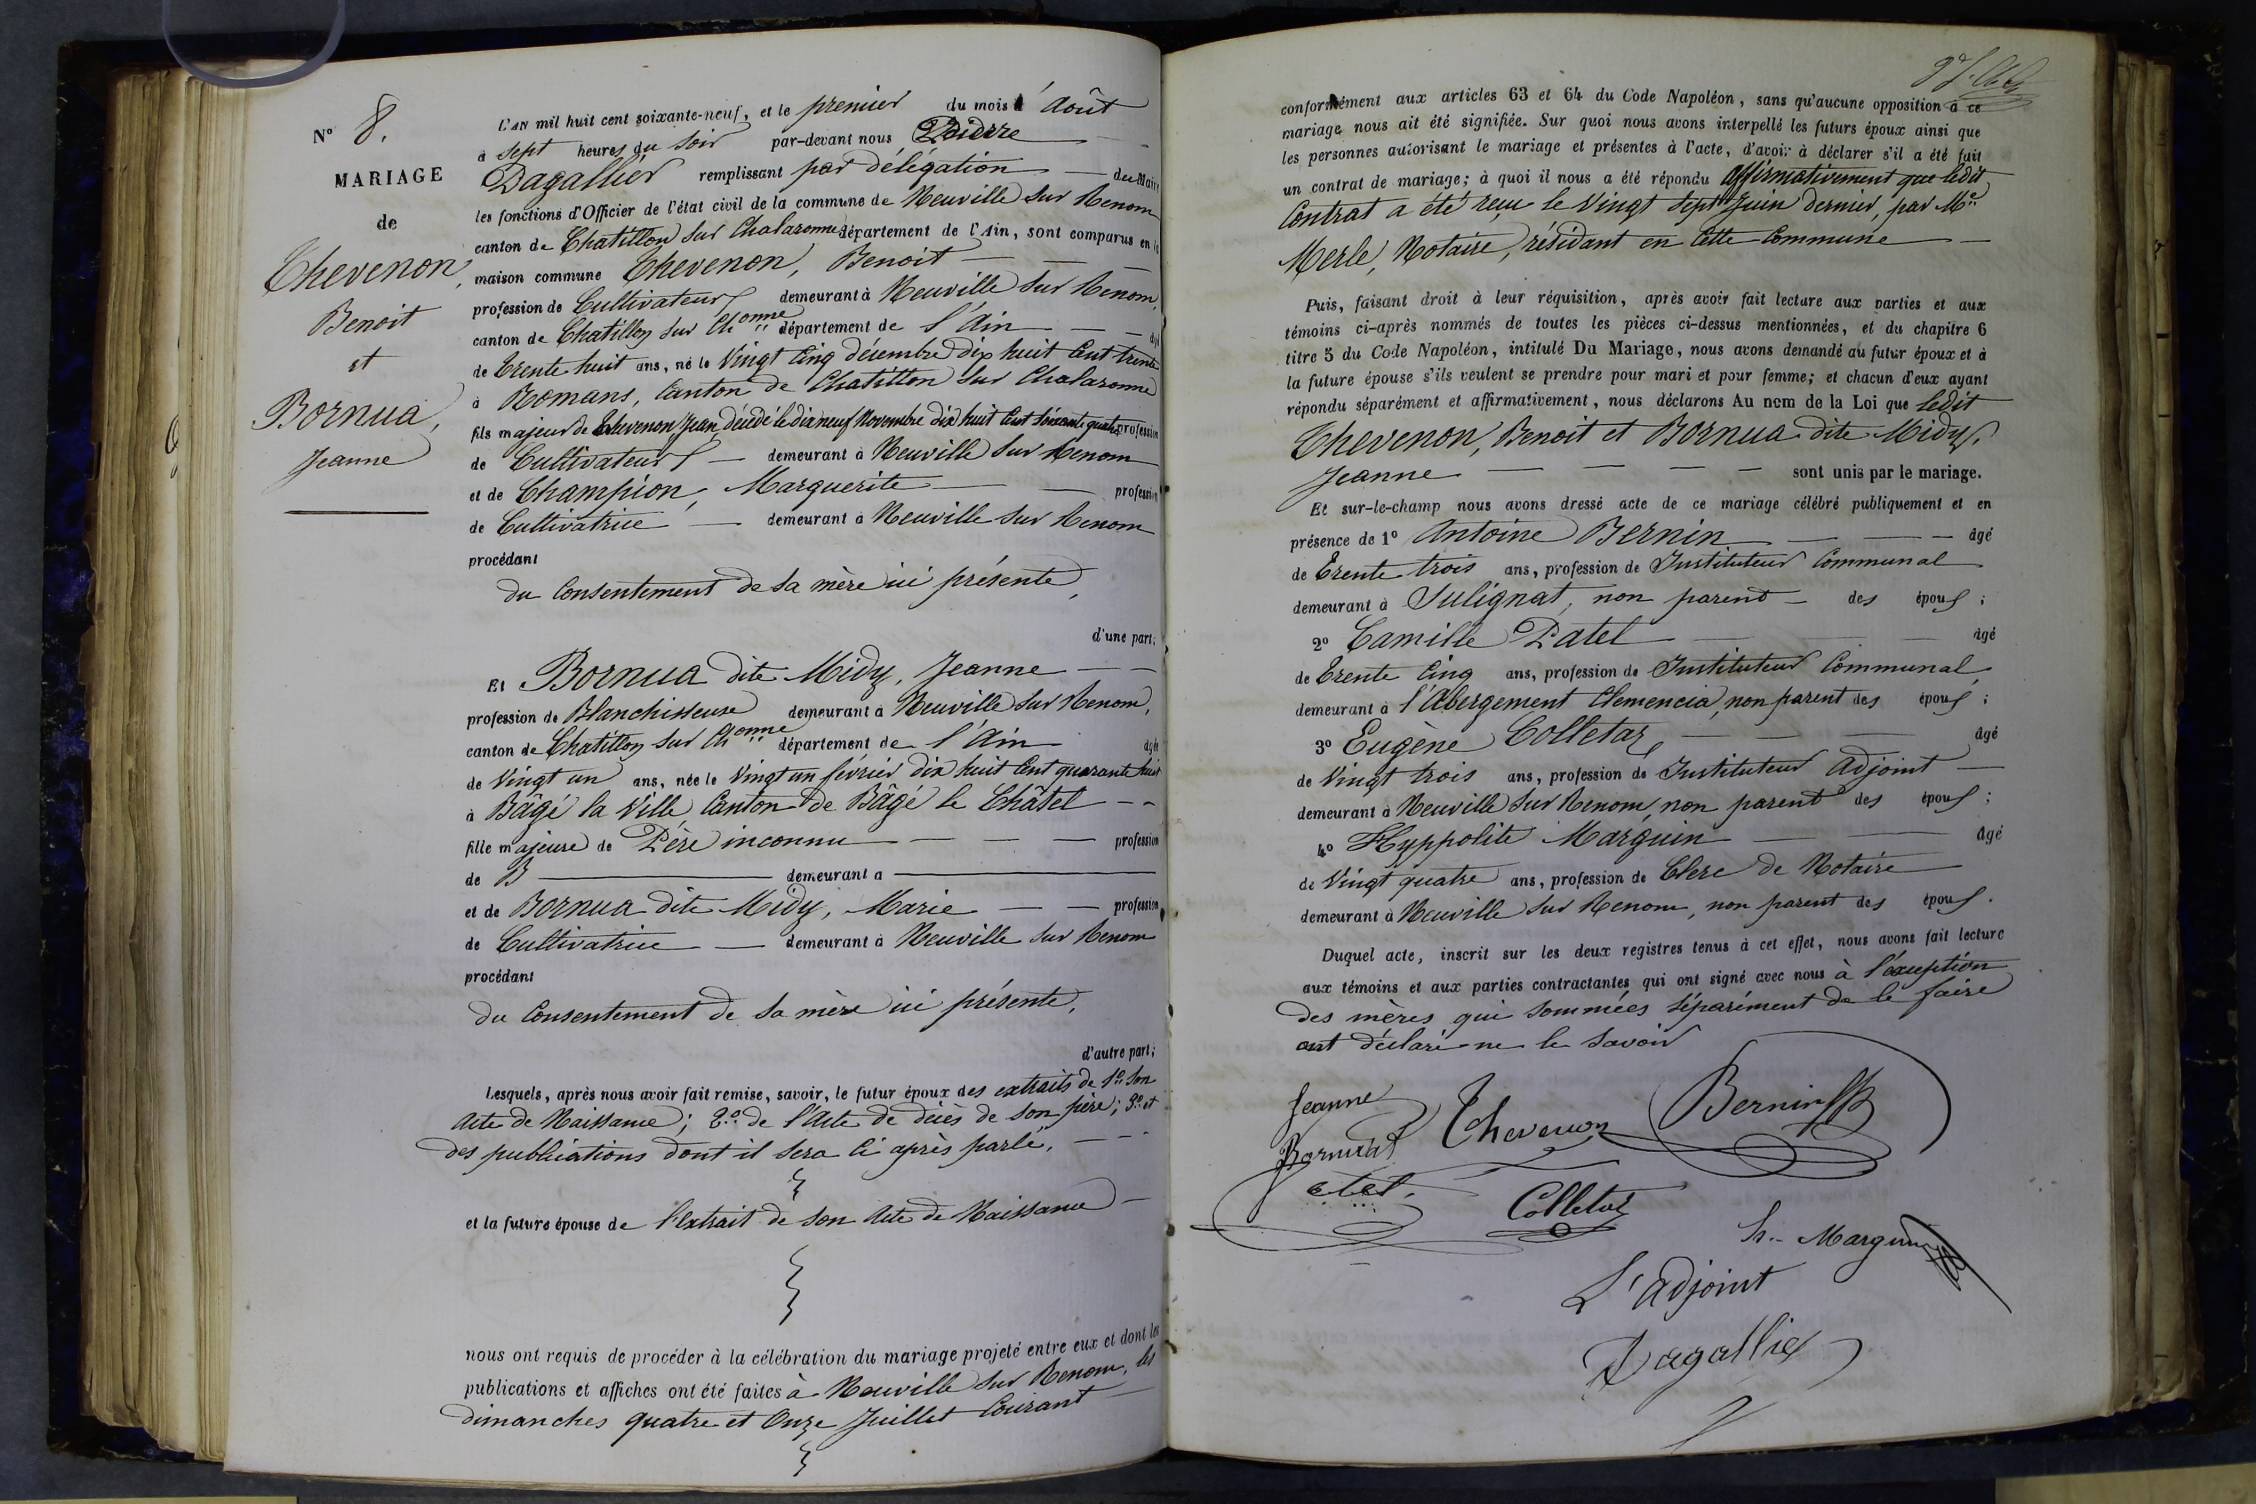 N° 8.
MARIAGE
de
Thevenon,
Benoit
et
Bornua,
Jeanne
L'AN mil huit cent soixante-neuf, et le premier du mois d'Août
à sept heures du soir par-devant nous
Dagallier remplissant par délégation — du Maire
les fonctions d'Officier de l'état civil de la commune de Neuville sur Renom
canton de Chatillon sur Chalaronne département de l'Ain, sont comparus en la
maison commune Thevenon, Benoit — — —
profession de Cultivateur demeurant à Neuville sur Renom,
canton de Chatillon sur Ch.onne département de l'Ain — — âgé
de Trente huit ans, né le Vingt Cinq décembre dix huit Cent trente
à Romans, Canton de Chatillon sur Chalaronne
fils majeur de Thevenon, Jean, décédé le dix neuf Novembre dix huit Cent soixante quatre profession
de Cultivateur — demeurant à Neuville sur Renom
et de Champion, Marguerite — — profession
de Cultivatrice — demeurant à Neuville sur Renom
procédant
du Consentement de sa mère ici présente,
d'une part;
Et Bornua dite Midy, Jeanne — —
profession de Blanchisseuse demeurant à Neuville sur Renom,
canton de Chatillon sur Ch.onne département de l'Ain âgée
de Vingt un ans, née le Vingt un février dix huit Cent quarante huit
à Bâgé la Ville, Canton de Bâgé le Châtel — —
fille majeure de Père inconnu — — — profession
de — demeurant à —
et de Bornua dite Midy, Marie — — profession
de Cultivatrice — demeurant à Neuville sur Renom
procédant
du Consentement de sa mère ici présente,
d'autre part;
Lesquels, après nous avoir fait remise, savoir, le futur époux des extraits de 1° son
Acte de Naissance; 2° de l'Acte de décès de son père; 3° et
des publications dont il sera ci après parlé, — — —
et la future épouse de l'extrait de son Acte de Naissance —
nous ont requis de procéder à la célébration du mariage projeté entre eux et dont les
publications et affiches ont été faites à Neuville sur Renom, les
dimanches quatre et Onze Juillet Courant —
conformément aux articles 63 et 64 du Code Napoléon, sans qu'aucune opposition à ce
mariage nous ait été signifiée. Sur quoi nous avons interpellé les futurs époux ainsi que
les personnes autorisant le mariage et présentes à l'acte, d'avoir à déclarer s'il a été fait
un contrat de mariage; à quoi il nous a été répondu affirmativement que ledit
Contrat a été reçu le Vingt sept Juin dernier, par Me
Merle, Notaire, résidant en Cette Commune —
Puis, faisant droit à leur réquisition, après avoir fait lecture aux parties et aux
témoins ci-après nommés de toutes les pièces ci-dessus mentionnées, et du chapitre 6
titre 5 du Code Napoléon, intitulé Du Mariage, nous avons demandé au futur époux et à
la future épouse s'ils veulent se prendre pour mari et pour femme; et chacun d'eux ayant
répondu séparément et affirmativement, nous déclarons Au nom de la Loi que ledit
Thevenon, Benoit et Bornua dite Midy,
Jeanne — — — — — sont unis par le mariage.
Et sur-le-champ nous avons dressé acte de ce mariage célébré publiquement et en
présence de 1° Antoine Bernin — — — âgé
de Trente trois ans, profession de Instituteur Communal
demeurant à Sulignat, non parent — des époux;
2° Camille Patel — — — âgé
de Trente Cinq ans, profession de Instituteur Communal,
demeurant à l'Abergement Clemencia, non parent des époux;
3° Eugène Colletaz, — — — âgé
de Vingt trois ans, profession de Instituteur Adjoint —
demeurant à Neuville sur Renom, non parent des époux;
4° Hyppolite Marguin — — âgé
de Vingt quatre ans, profession de Clerc de Notaire
demeurant à Neuville sur Renom, non parent des époux.
Duquel acte, inscrit sur les deux registres tenus à cet effet, nous avons fait lecture
aux témoins et aux parties contractantes qui ont signé avec nous à l'exception
des mères qui sommées séparément de le faire
ont déclaré ne le savoir
Jeanne Thevenon Bernin
Bornuat
Colletaz
h. Marguin
L'adjoint
Dagallier